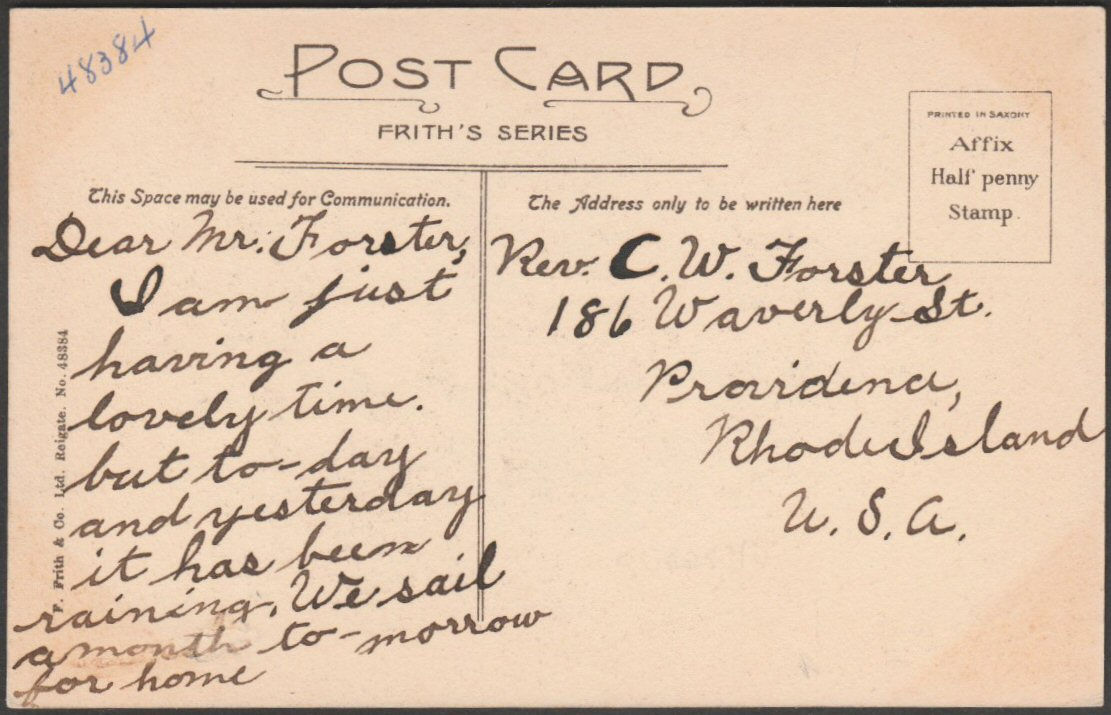 48384
POST CARD
FRITH'S SERIES
PRINTED IN SAXONY
Affix
Half penny
Stamp.
This Space may be used for Communication.
Dear Mr. Forster,
I am just
having a
lovely time.
but to-day
and yesterday
it has been
raining. We sail
a month to-morrow
for home
The Address only to be written here
Rev. C. W. Forster
186 Waverly St.
Providence,
Rhode Island
U. S. A.
F. Frith & Co. Ltd. Reigate. No. 48384